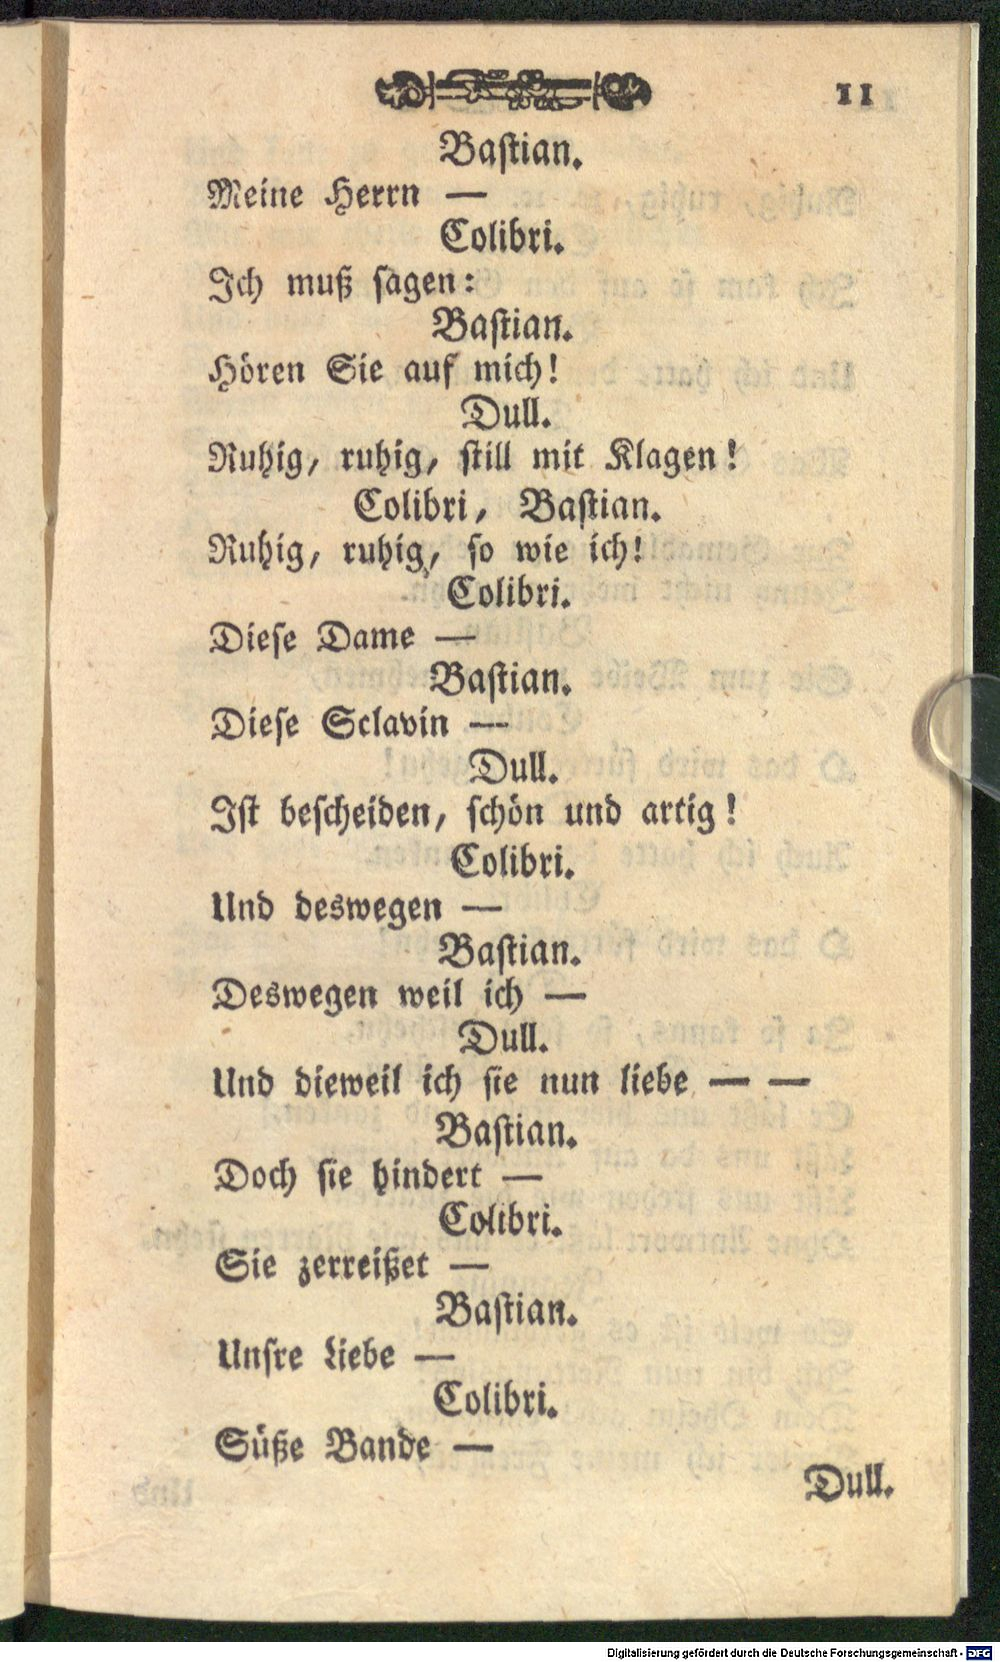 11
Bastian.
Meine Herrn —
Colibri.
Ich muß sagen:
Bastian.
Hören Sie auf mich!
Dull.
Ruhig, ruhig, still mit Klagen!
Colibri, Bastian.
Ruhig, ruhig, so wie ich!
Colibri.
Diese Dame —
Bastian.
Diese Sclavin —
Dull.
Ist bescheiden, schön und artig!
Colibri.
Und deswegen —
Bastian.
Deswegen weil ich —
Dull.
Und dieweil ich sie nun liebe — —
Bastian.
Doch sie hindert —
Colibri.
Sie zerreißet —
Bastian.
Unsre Liebe —
Colibri.
Süße Bande —
Dull.
Digitalisierung gefördert durch die Deutsche Forschungsgemeinschaft - DFG